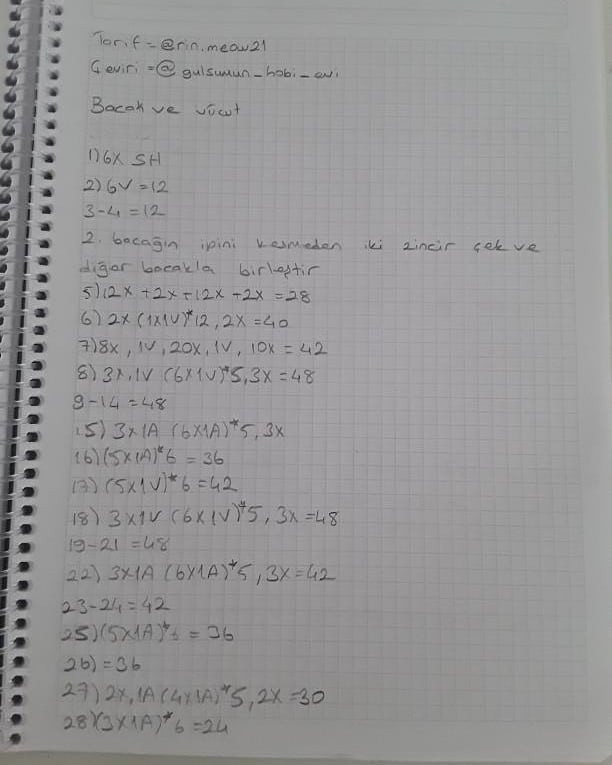 Tarif = @rin.meow21
Çeviri = @gulsumun_hobi_evi
Bacak ve vücut
1) 6X SH
2) 6V = 12
3-4 = 12
2. bacağın ipini kesmeden iki zincir çek ve
diğer bacakla birleştir
5) 12X + 2X + 12X + 2X = 28
6) 2X (1X1V)*12, 2X = 40
7) 8X, 1V, 20X, 1V, 10X = 42
8) 3X, 1V (6X1V)*5, 3X = 48
9-14 = 48
15) 3X1A (6X1A)*5, 3X
16) (5X1A)*6 = 36
17) (5X1V)*6 = 42
18) 3X1V (6X1V)*5, 3X = 48
19-21 = 48
22) 3X1A (6X1A)*5, 3X = 42
23-24 = 42
25) (5X1A)*6 = 36
26) = 36
27) 2X, 1A (4X1A)*5, 2X = 30
28) (3X1A)*6 = 24